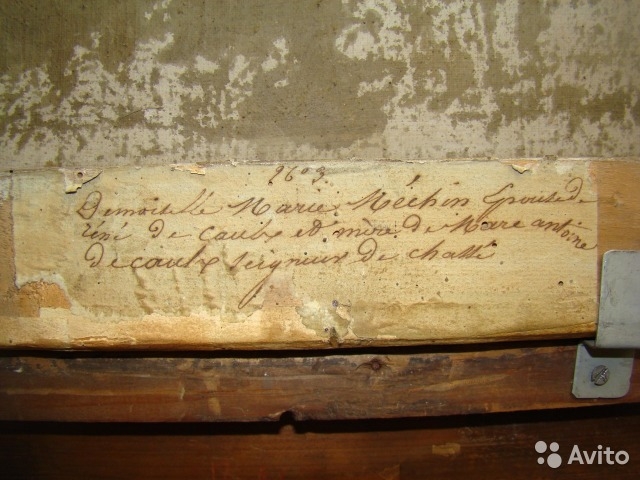 1603
Demoiselle Marie Méchin Epouse de
réné de Caulx et mère de Marc antoine
de caulx seigneur de challé
Avito